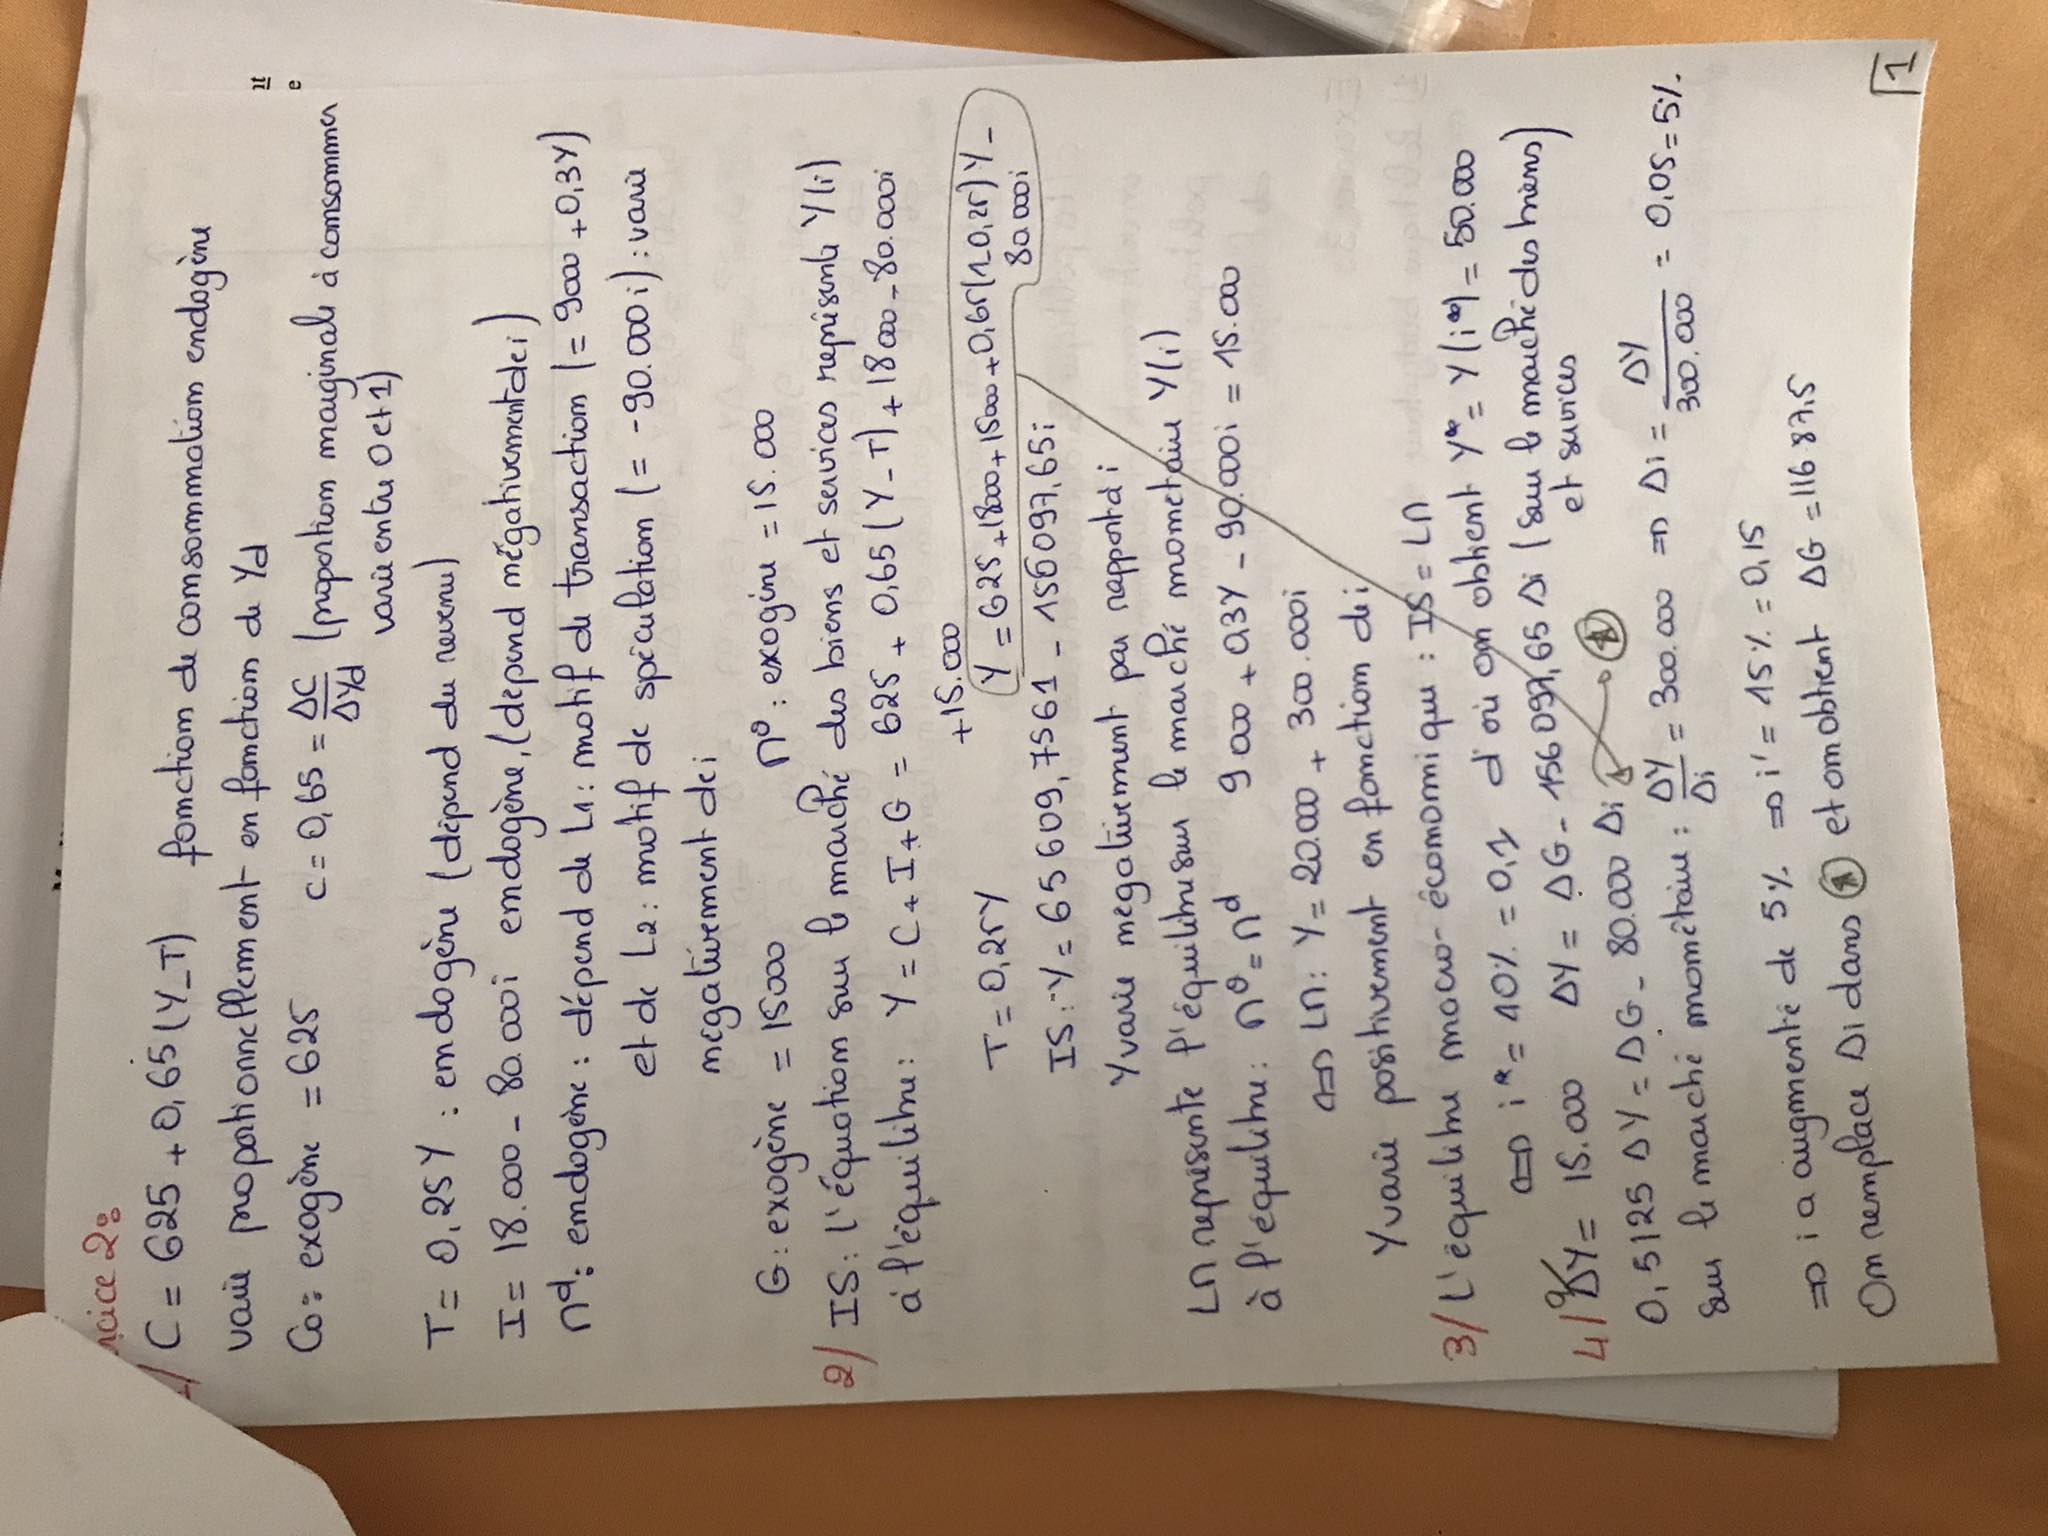 C = 625 + 0,65 (Y_T) fonction de consommation endogène
varie proportionnellement en fonction de Yd
Co: exogène = 625 c = 0,65 = ΔC/ΔYd (proportion marginale à consommer
varie entre 0 et 1)
T = 0,25Y : endogène (dépend du revenu)
I = 18.000 - 80.000i endogène, (dépend négativement de i)
Md: endogène : dépend de L1 : motif de transaction (= 9000 + 0,3Y)
et de L2 : motif de spéculation (= -90.000 i) : varie
négativement de i
G : exogène = 15000 Mo : exogène = 15.000
2/ IS : l'équation sur le marché des biens et services représente Y(i)
à l'équilibre : Y = C + I + G = 625 + 0,65 (Y - T) + 18000 - 80.000i
+ 15.000
T = 0,25Y
Y = 625 + 18000 + 15000 + 0,65(1-0,25)Y -
80.000i
IS : Y = 65609,7561 - 156097,65i
Y varie négativement par rapport à i
LM représente l'équilibre sur le marché monétaire Y(i)
à l'équilibre : Mo = Md 9000 + 0,3Y - 90.000i = 15.000
⇔ LM : Y = 20.000 + 300.000i
Y varie positivement en fonction de i
3/ L'équilibre macro-économique : IS = LM
⇔ i* = 10% = 0,1 d'où on obtient Y* = Y(i*) = 50.000
4/ ΔY = 15.000 ΔY = ΔG - 156097,65 Δi (sur le marché des biens)
et services
0,5125 ΔY = ΔG - 80.000 Δi *
sur le marché monétaire : ΔY/Δi = 300.000 ⇒ Δi = ΔY/300.000 = 0,05 = 5%.
⇒ i a augmenté de 5% ⇒ i' = 15% = 0,15
On remplace Δi dans * et on obtient ΔG = 11687,5
1